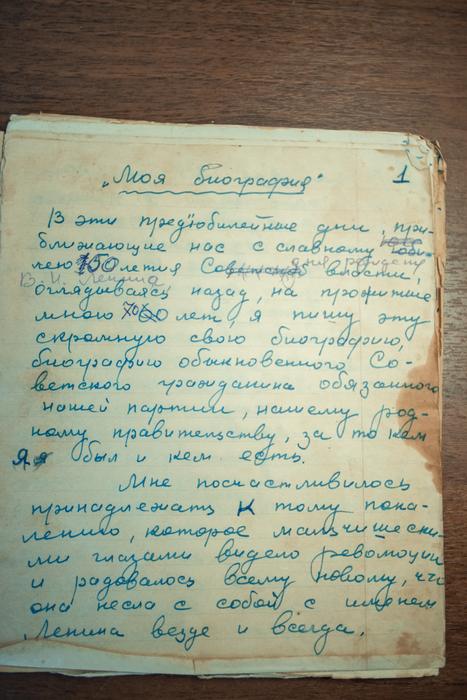 „Моя биография"
1
В эти предъюбилейные дни, при-
ближающие нас с славному юби-
лею 150 летия Советской власти,
дня рождения
В. И. Ленина
оглядываясь назад, на прожитые
мною 70 лет, я пишу эту
скромную свою биографию,
биографию обыкновенного Со-
ветского гражданина обязанного
нашей партии, нашему род-
ному правительству, за то кем
Я я был и кем есть.
Мне посчастливилось
принадлежать к тому поко-
лению, которое мальчишески-
ми глазами видело революции
и радовалось всему новому, что
она несла с собой с именем
Ленина везде и всегда.